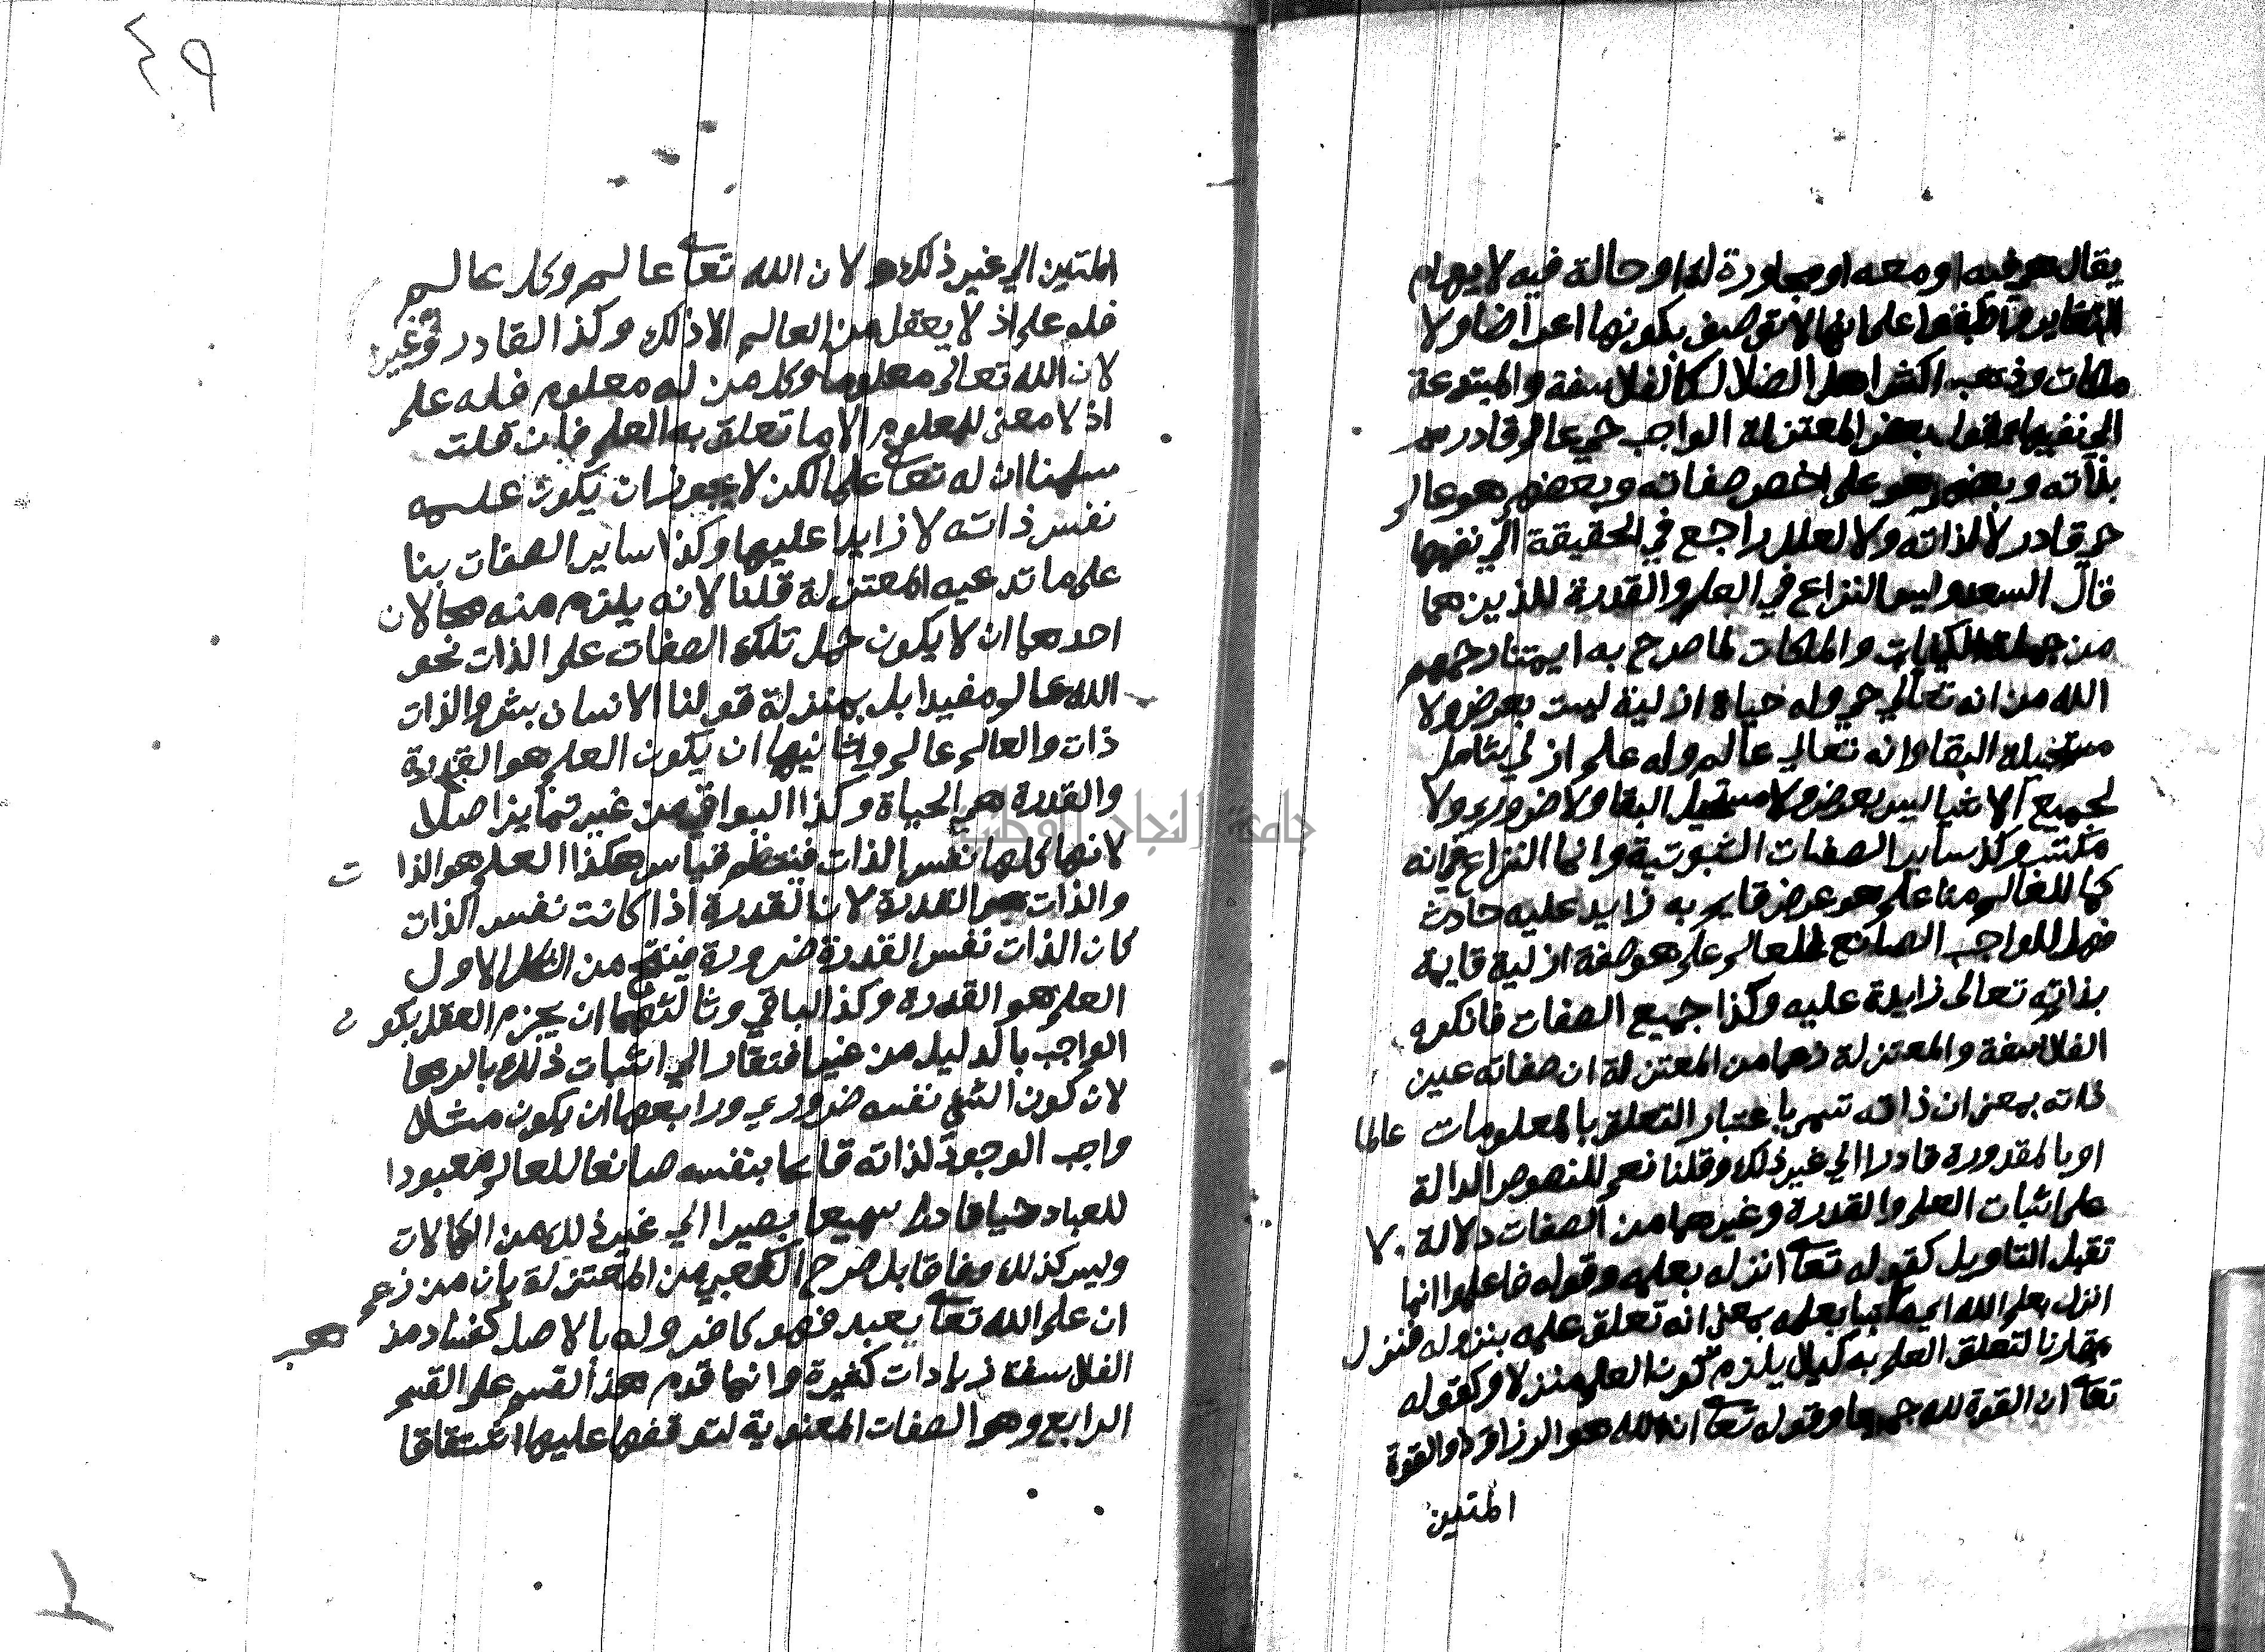 يقال هو فيه او معه او مجاورة له او حالة فيه لايهام
التغاير واطبقوا على انها لا توصف بكونها اعراضا ولا
ملكات وذهب اكثر اهل الضلال كالفلاسفة والمبتدعة
الي نفيها فقول بعض المعتزلة الواجب حي عالم قادر
بذاته وبعضهم هو على اخص صفاته وبعضهم هو عالم
حي قادر لا لذاته ولا لعلل راجع في الحقيقة الي نفيها
قال السعد وليس النزاع في العلم والقدرة للذين هما
من جملة الكيفيات والملكات لما صرح به ايمتنا رحمهم
الله من انه تعالي حي وله حياة ازلية ليست بعرض ولا
مستحيلة البقا وانه تعالي عالم وله علم ازلي شامل
لجميع الاشيا ليس بعرض ولا مستحيل البقا ولا ضروري ولا
مكتسب وكذ ساير الصفات الثبوتية وانما النزاع في انه
كما للعالم منا علم هو عرض قايم به زايد عليه حادث
فهل للواجب الصانع للعالم علم هو صفة ازلية قايمة
بذاته تعالى زايدة عليه وكذا جميع الصفات فانكره
الفلاسفة والمعتزلة زعما من المعتزلة ان صفاته عين
ذاته بمعنى ان ذاته تسمى باعتبار التعلق بالمعلومات عالما
او بالمقدورة قادرا الي غير ذلك وقلنا نعم للنصوص الدالة
على اثبات العلم والقدرة وغيرهما من الصفات دلالة لا
تقبل التاويل كقوله تعا انزله بعلمه وقوله فاعلموا انما
انزل بعلم الله اي ملتبسا بعلمه بمعنى انه تعلق علمه بنزوله فنزل
مقارنا لتعلق العلم به كيلا يلزم كون العلم منزلا وكقوله
تعا ان القوة لله جميعا وقوله تعا ان الله هو الرزاق ذو القوة
المتين
٤٩
المتين الي غير ذلك ولان الله تعا عالم وكل عالم
فله علم اذ لا يعقل من العالم الا ذلك وكذا القادر وغيره
لان الله تعالى معلوما وكل من له معلوم فله علم
اذ لا معنى للمعلوم الا ما تعلق به العلم فان قلت
سلمنا ان له تعا علما لكن لا يجوز ان يكون علمه
نفس ذاته لا زايدا عليها وكذا ساير الصفات بنا
على ما تدعيه المعتزلة قلنا لانه يلزم منه محالان
احدهما ان لا يكون حمل تلك الصفات على الذات نحو
الله عالم مفيدا بل بمنزلة قولنا الانسان بشر والذات
ذات والعالم عالم وثانيها ان يكون العلم هو القدرة
والقدرة هي الحياة وكذا البواقي من غير تمايز اصلا
لانها كلها نفس الذات فينتظم قياس هكذا العلم هو الذات
والذات هو القدرة لان القدرة اذا كانت نفس الذات
كان الذات نفس القدرة ضرورة فينتج من الشكل الاول
العلم هو القدرة وكذ الباقي وثالثهما ان يجزم العقل بكون
الواجب بالدليل من غير افتقار الي اثبات ذلك بالبرهان
لان كون الشي نفسه ضروري ورابعها ان يكون مثلا
واجب الوجود لذاته قايما بنفسه صانعا للعالم معبودا
للعباد حيا قادرا سميعا بصيرا الي غير ذلك من الكمالات
وليس كذلك وفاقا بل صرح الكعبي من المعتزلة بان من زعم
ان علم الله تعا يعبد فهو كافر وله بالاصل كفساد مذهب
الفلاسفة زيادات كثيرة وانما قدم هذا القسم على القسم
الرابع وهو الصفات المعنوية لتوقفها عليها اشتقاقا
جامعة النجاح الوطنية